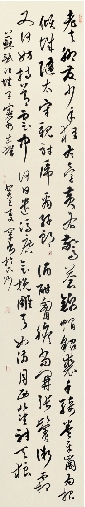 老夫聊發少年狂左牽黃右擎蒼錦帽貂裘千騎卷平岡為報
傾城隨太守親射虎看孫郎酒酣胸膽尚開張鬢微霜
又何妨持節雲中何日遣馮唐會挽雕弓如滿月西北望射天狼
蘇軾江城子密州出獵